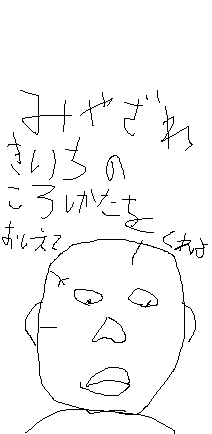 みやざわ
きいちの
ころしかたを
おしえてくれよ